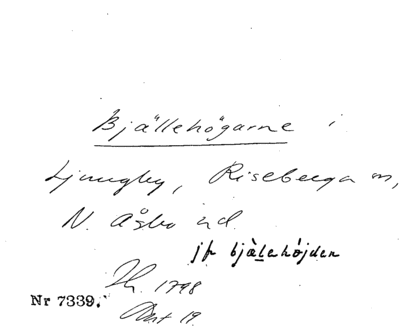 Bjällehögarne i
Ljungby, Riseberga sn,
N. Åsbo hd.
jfr bjälehöjden
1798
Nr 7339.
Akt 19.